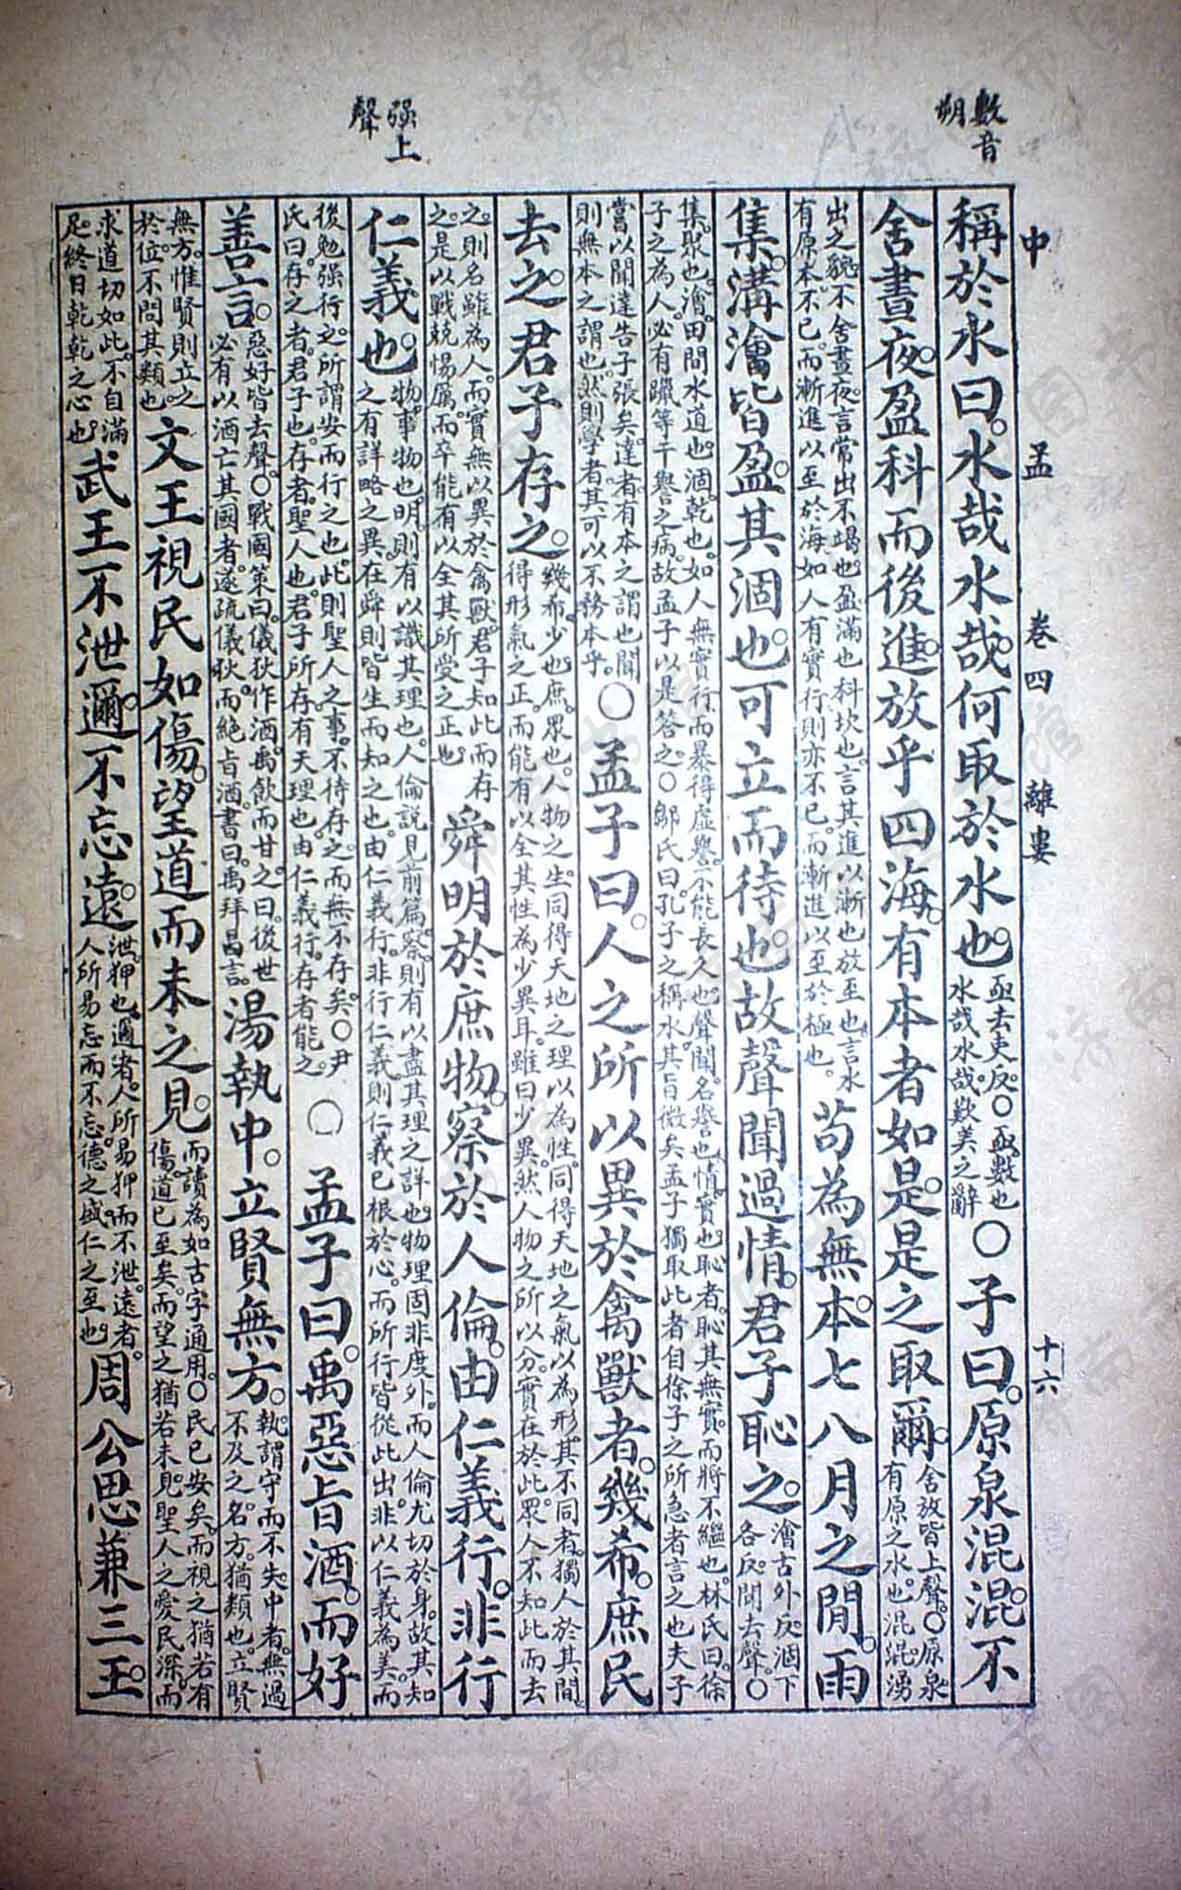 數音
朔
强上
聲
中 孟 卷四 離婁 十六
稱於水曰。水哉水哉。何取於水也。亟去吏反。○亟數也水哉水哉。歎美之辭○子曰。原泉混混。不
舍晝夜。盈科而後進。放乎四海。有本者如是。是之取爾。舍放皆上聲。○原泉有原之水也。混混。湧
出之貌。不舍晝夜。言常出不竭也。盈滿也。科坎也。言其進以漸也。放至也。言水有原本。不已。而漸進以至於海。如人有實行。則亦不已。而漸進以至於極也。苟為無本。七八月之閒。雨
集。溝澮皆盈。其涸也。可立而待也。故聲聞過情。君子恥之。澮古外反。涸下各反。聞去聲。○
集。聚也。澮。田間水道也。涸。乾也。如人無實行。而暴得虛譽。不能長久也。聲聞。名譽也。情。實也。恥者。恥其無實。而將不繼也。林氏曰。徐子之為人。必有躐等干譽之病。故孟子以是答之。○鄒氏曰。孔子之稱水。其旨微矣。孟子獨取此者。自徐子之所急者言之也。夫子
嘗以聞達告子張矣。達者有本之謂也。聞則無本之謂也。然則學者。其可以不務本乎。○孟子曰。人之所以異於禽獸者。幾希。庶民
去之。君子存之。幾希。少也。庶。眾也。人物之生。同得天地之理以為性。同得天地之氣以為形。其不同者。獨人於其間。得形氣之正。而能有以全其性。為少異耳。雖曰少異。然人物之所以分。實在於此。眾人不知此而去
之。則名雖為人。而實無以異於禽獸。君子知此而存之。是以戰兢惕厲。而卒能有以全其所受之正也舜明於庶物。察於人倫。由仁義行。非行
仁義也。物。事物也。明。則有以識其理也。人倫說見前篇。察。則有以盡其理之詳也。物理固非度外。而人倫尤切於身。故其知之有詳略之異。在舜則皆生而知之也。由仁義行。非行仁義。則仁義已根於心。而所行皆從此出。非以仁義為美。而
後勉强行之。所謂安而行之也。此則聖人之事。不待存之。而無不存矣。○尹氏曰。存之者。君子也。存者。聖人也。君子所存。存有天理也。由仁義行。存者能之。○孟子曰。禹惡旨酒。而好
善言。惡好皆去聲。○戰國策曰。儀狄作酒。禹飲而甘之。曰。後世必有以酒亡其國者。遂疏儀狄。而絕旨酒。書曰。禹拜昌言。湯執中。立賢無方。執。謂守而不失。中者。無過不及之名。方。猶類也。立賢
無方。惟賢則立之於位。不問其類也。文王視民如傷。望道而未之見。而讀為如。古字通用。○民已安矣。而視之猶若有傷。道已至矣。而望之猶若未見。聖人之愛民深。而
求道切如此。不自滿足。終日乾乾之心也。武王不泄邇。不忘遠。泄。狎也。邇者。人所易狎而不泄。遠者。人所易忘而不忘。德之盛。仁之至也。周公思兼三王。